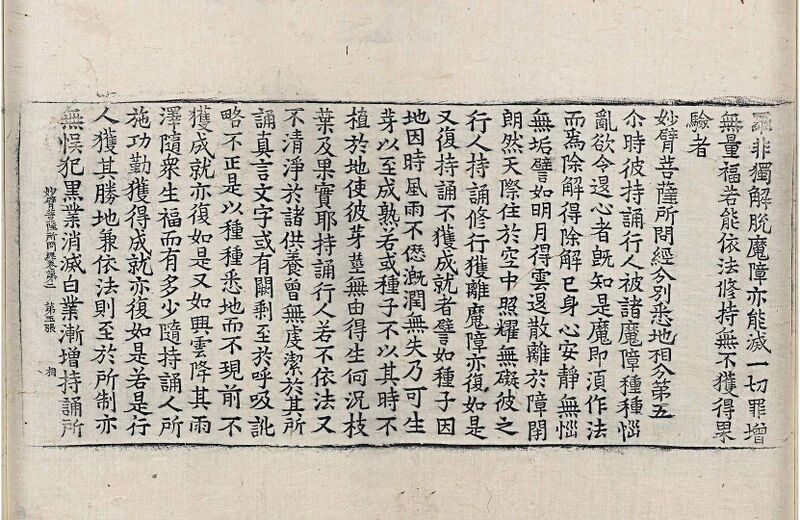 羅非獨解脫魔障亦能滅一切罪增
無量福若能依法修持無不獲得果
驗者
妙臂菩薩所問經分別悉地相分第五
尒時彼持誦行人被諸魔障種種惱
亂欲令退心者旣知是魔即湏作法
而爲除解得除解已身心安靜無惱
無垢譬如明月得雲退散離於障閉
朗然天際住於空中照耀無礙彼之
行人持誦修行獲離魔障亦復如是
又復持誦不獲成就者譬如種子因
地因時風雨不愆漑潤無失乃可生
芽以至成熟若或種子不以其時不
植於地使彼芽莖無由得生何況枝
葉及果實耶持誦行人若不依法又
不清淨於諸供養曾無虔潔於其所
誦真言文字或有闕剩至於呼吸訛
略不正是以種種悉地而不現前不
獲成就亦復如是又如興雲降其雨
澤隨衆生福而有多少隨持誦人所
施功勤獲得成就亦復如是若是行
人獲其勝地兼依法則至於所制亦
無悞犯黒業消滅白業漸增持誦所
妙臂菩薩所問經卷第二 第五張 相